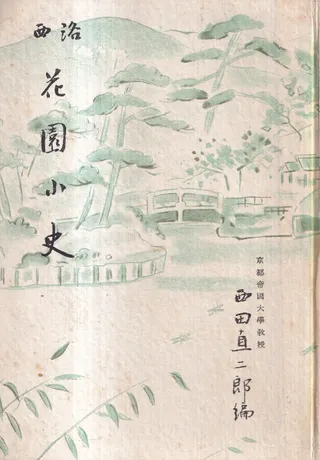 洛西
花園小史
京都帝國大學教授
西田直二郎編